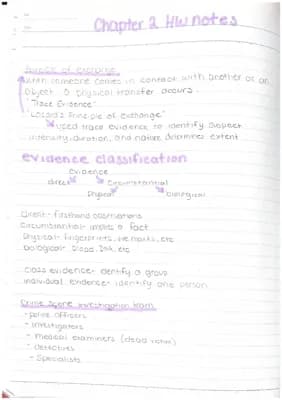 Chapter 2 HW notes
Purpose of exchange
when someone comes in contact with another or an
object a physical transfer occurs.
"Trace Evidence"
"Locard's Principle of exchange"
used trace evidence to identify suspect
intensity, duration, and nature determines extent
evidence classification
Evidence
direct Circumstantial
physical biological
Direct- firsthand observations
Circumstantial- implies a fact
Physical- fingerprints, tire marks, etc
biological- blood, DNA, etc
class evidence- identify a group
individual evidence- identify one person
Crime scene investigation team
- police officers
- investigators
- medical examiners (dead victim)
- detectives
- Specialists